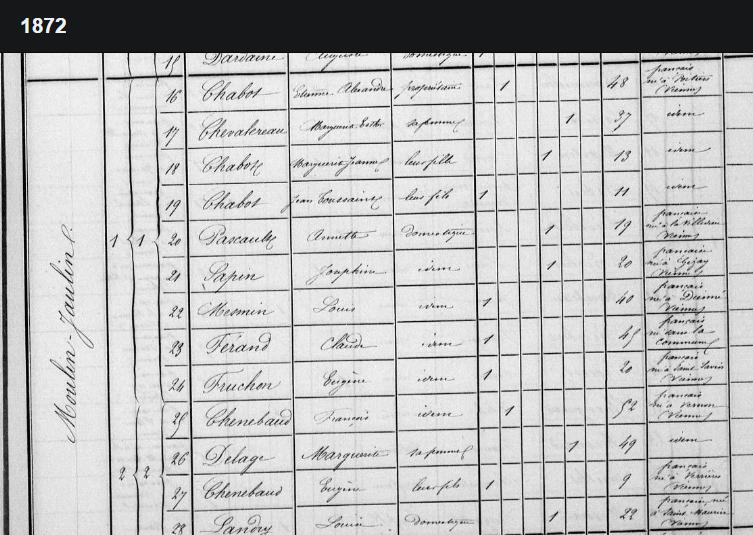 1872
15 Dardaine Auguste domestique 1
16 Chabot Etienne Alexandre propriétaire 1 48 français
né à Poitiers
Vienne
17 Chevalereau Marguerite Esther sa femme 1 37 idem
18 Chabot Marguerite Jeanne leur fille 1 13 idem
19 Chabot Jean Toussaint leur fils 1 11 idem
Moulin-Jaulin
1 1 20 Pascault Annette domestique 1 19 française
née à la Villedieu
Vienne
21 Sapin Joséphine idem 1 20 française
née à Gizay
Vienne
22 Mesmin Louis idem 1 40 français
né à Dienné
Vienne
23 Ferand Claude idem 1 45 français
né dans la
commune
24 Fruchon Eugène idem 1 20 français
né à Saint Savin
Vienne
25 Chenebaud François idem 1 52 français
né à Vernon
Vienne
26 Delage Marguerite sa femme 1 49 idem
2 2 27 Chenebaud Eugène leur fils 1 9 français
né à Verrières
Vienne
28 Landry Louise domestique 1 22 française née
à Saint Maurice
Vienne